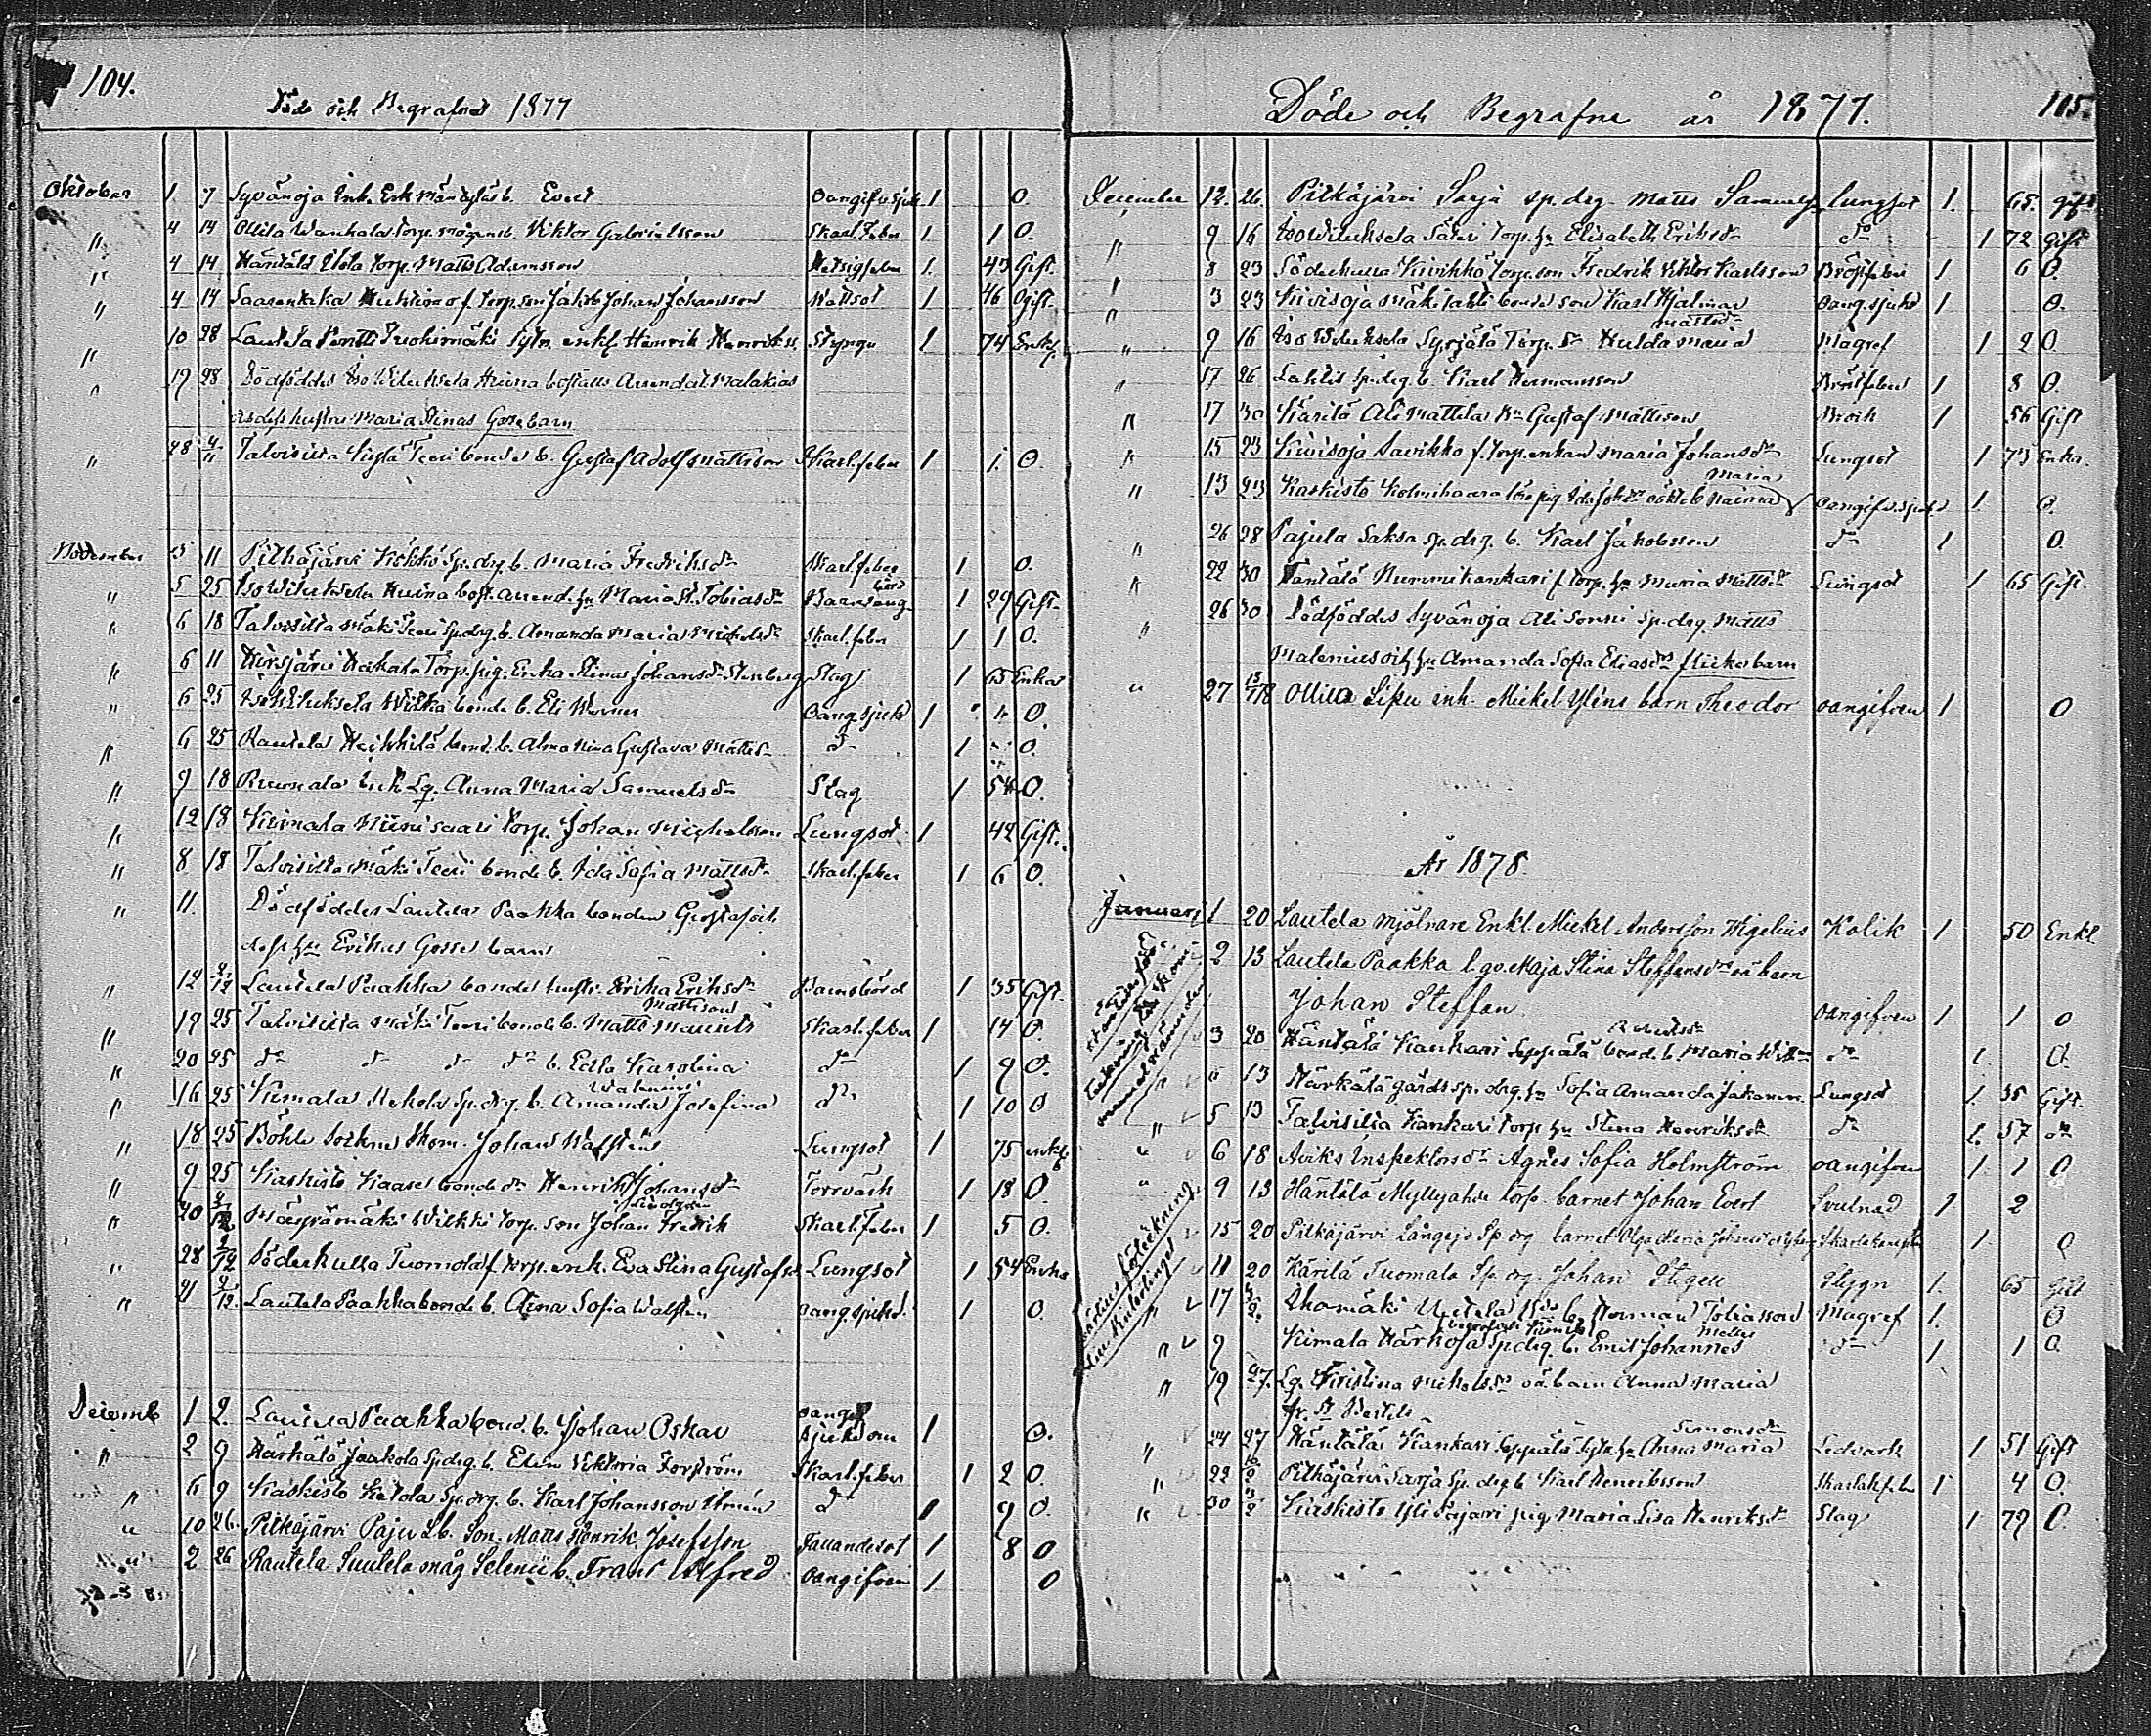 104.
Död och Begrafne 1877
Oktober 1 7 Syvänoja Inh. Erik Mäntyläs b. Evert Oangifv. sjukd. 1 O.
" 4 14 Ollila Wankala torp. mågens b. Viktor Gabrielsson Skarl.feber 1 1 O.
" 4 14 Häntälä Elola torp. Matts Adamsson Hetsigfeber 1. 43 Gift.
" 4 14 Saarentaka f. torp. son Jakob Johan Johansson Wattsot 1 46 Ogift.
" 10 28 Lautela Pentti Tuohimäki Sytn. enkl. Henrik Henrikss. Styngn 1 74 Enkl.
" 19 28 Dödföddes Iso Wiluksela Huina bost. Arrendat. Malakias
hustru Maria Stinas Gossebarn
" 28 4/11 Talvisilta Teeri bondes b. Gustaf Adolf Mattsson Skarl.feber 1 1. O.
November 5 11 Pitkäjärvi Kökkö Sp.drg. b. Maria Fredriksdr Skarl.feber 1 O.
" 5 25 Iso Wiluksela Huina bost. arrend. hu Maria St. Tobiasdr Barnsäng 1 29 Gift
" 6 18 Talvisilta Mäki Teeri Sp.drg. b. Amanda Maria Michelsdr Skarl.feber 1 1 O.
" 6 11 Hirsjärvi Hakala Torp. pig. Enka Stina Johansdr Stenberg Slag 1 65 Enka
" 6 25 Iso Wiluksela Wilkka bonde b. Eli Werner Oang. sjukd 1 O.
" 6 25 Rautela Heikkilä bond. b. Alma Gustava Mattsdr do 1 O.
" 9 18 Ruonala Inh. Lg. Anna Maria Samuelsdr Slag 1 54 O.
" 12 18 Kimala Niinisaari torp. Johan Michelsson Lungsot 1 42 Gift.
" 8 18 Talvisilta Mäki Teeri bonde b. Ida Sofia Mattsdr Skarl.feber 1 6 O.
" 11. Dödföddes Lautela Paakka bonden Gustaf och
hu Erikas Gosse barn
" 12 4/12 Lautela Paakka bondes hustr. Erika Eriksdr Barnsbörd 1 35 Gift.
Mattsson
" 19 25 Talvisilta Mäki Teeri bonde b. Matts Mauritz Skarl.feber 1 14 O.
" 20 25 do do do do b. Edla Karolina do 1 9 O.
" 16 25 Kimala Mehola Sp.drg. b. Amanda Josefina do 1 10 O
" 18 25 Böhle sockne Skom. Johan Walstén Lungsot 1 75 enkl.
" 9 25 Kaskisto Kaase bonde dr Henrika Johansdr Torrvärk 1 18 O.
Lindgren
" 20 4/12 Wilkki torp. son Johan Fredrik Skarl.feber 1 5 O.
" 28 2/12 Söderkulla Tuomola f. torp. enk. Eva Stina Gustafsdr Lungsot 1 54 Enka
" 21 4/12. Lautela Paakka bonde b. Aina Sofia Walstén oang. sjukd. 1 O.
Decemb 1 2. Lautela Paakka bond. b. Johan Oskar oangif. sjukdom 1 O.
" 2 9 Härkälä Jaakola Sp.drg. b. Elin Viktoria Forström Skarl.feber 1 2 O.
" 6 9 Kaskisto Ketola Sp.drg. b. Karl Johansson Almén do 1 9 O.
" 10 26. Pitkäjärvi Paju Lb. Son. Matts Henrik Josefsson Fallandesot 1 8 O
" 2 26 Rautela Suutela måg Selenii b. Frans Alfred Oangifven 1 O
Döde och Begrafne år 1877. 105.
December 12. 26. Pitkäjärvi Sarja sp.drg. Matts Samuelss. Lungsot 1. 65. gift
" 9 16 Iso Wiluksela Säteri torp. hu Elisabeth Eriksdr do 1 72 Gift
" 8 23 Söderkulla Kivikkö torp. son Fredrik Viktor Karlsson Bröstfeber 1 6 O.
" 3 23 Kivisoja Mäkitalli bondes son Karl Hjalmar oang. sjukd 1 O.
Mattsdr
" 9 16 Iso Wiluksela Syrjälä Torp. dr Hulda Maria Magref 1 2 O.
" 17 26 Lahtis Sp.drg. b. Karl Hermansson Bröstfeber 1 8 O.
" 17 30 Kärilä Ali Mattila Bn Gustaf Mattsson Brock 1 56 Gift
" 15 23 Kivisoja Savikko f. torp. enkan Maria Johansdr Lungsot 1 73 Enka.
Maria
" 13 23 Kaskisto Kolmihaara lösa pig. Ida Johsdr oäkta b. Naima Oangifv. sjukd 1 O.
" 26 28 Pajula Saksa sp.drg. b. Karl Jakobsson do 1 O.
" 22 30 Häntälä Nummikankari f. torp. hu Maria Mattsdr Lungsot 1 65 Gift.
" 26 30 Dödföddes Syvänoja Ali Sonni Sp.drg. Matts
Malenius och hu Amanda Sofia Eliasdrs flickobarn
" 27 13/1 78 Ollila Sipu inh. Mickel Yléns barn Theodor oangifven 1 O
År 1878.
Januari 1 20 Lautela mjölnare Enkl. Mickel Andersson Higelius Kolik 1 50 Enkl
2 13 Lautela Paakka l.qv. Maja Stina Steffansdrs oä barn
Johan Steffan oangifven 1 1 O
3 20 Häntälä Kankari Seppälä bond. b. Maria do 1. O.
" 6 13 Härkälä gårds sp.drg. hu Sofia Amanda Lungsot 1. 35 Gift.
" 5 13 Talvisilta Kankari torp. hu Stina Henriksdr do 1. 57 do
" 6 18 Aviks Inspektors dr Agnes Sofia Holmström oangifven 1. 1 O
" 9 13 Häntälä Myllyahde torp. barnet Johan Evert Svulnad 1 2
15 20 Pitkäjärvi Långsjö Sp.drg barnet Olga Maria Skarlakansfeber 1. O
18 20 Kärilä Tuomala Sp.drg. Johan Stigell Stygn 1. 65 Gift
" 17 Uhomäki Uutela b. Herman Tobiasson Magref 1. O
" 9 Kimala Härkoja Sp.drg. b. Emil Johannes do 1 1 O.
" 19 27. Lg. Kristina Michelsdr oä. barn Anna Maria
fr. St Bertils
Simonsdr
" 24 27 Häntälä Kankari Seppälä Sytn. hu Anna Maria Ledvärk 1 51 Gift
" 22 10/2 Pitkäjärvi Sarja Sp.drg. b Karl Henriksson Skarlak.feb. 1 4 O.
" 30 3/2 Kaskisto Yli Pajari pig. Maria Lisa Henriksdr Slag 1 79 O.